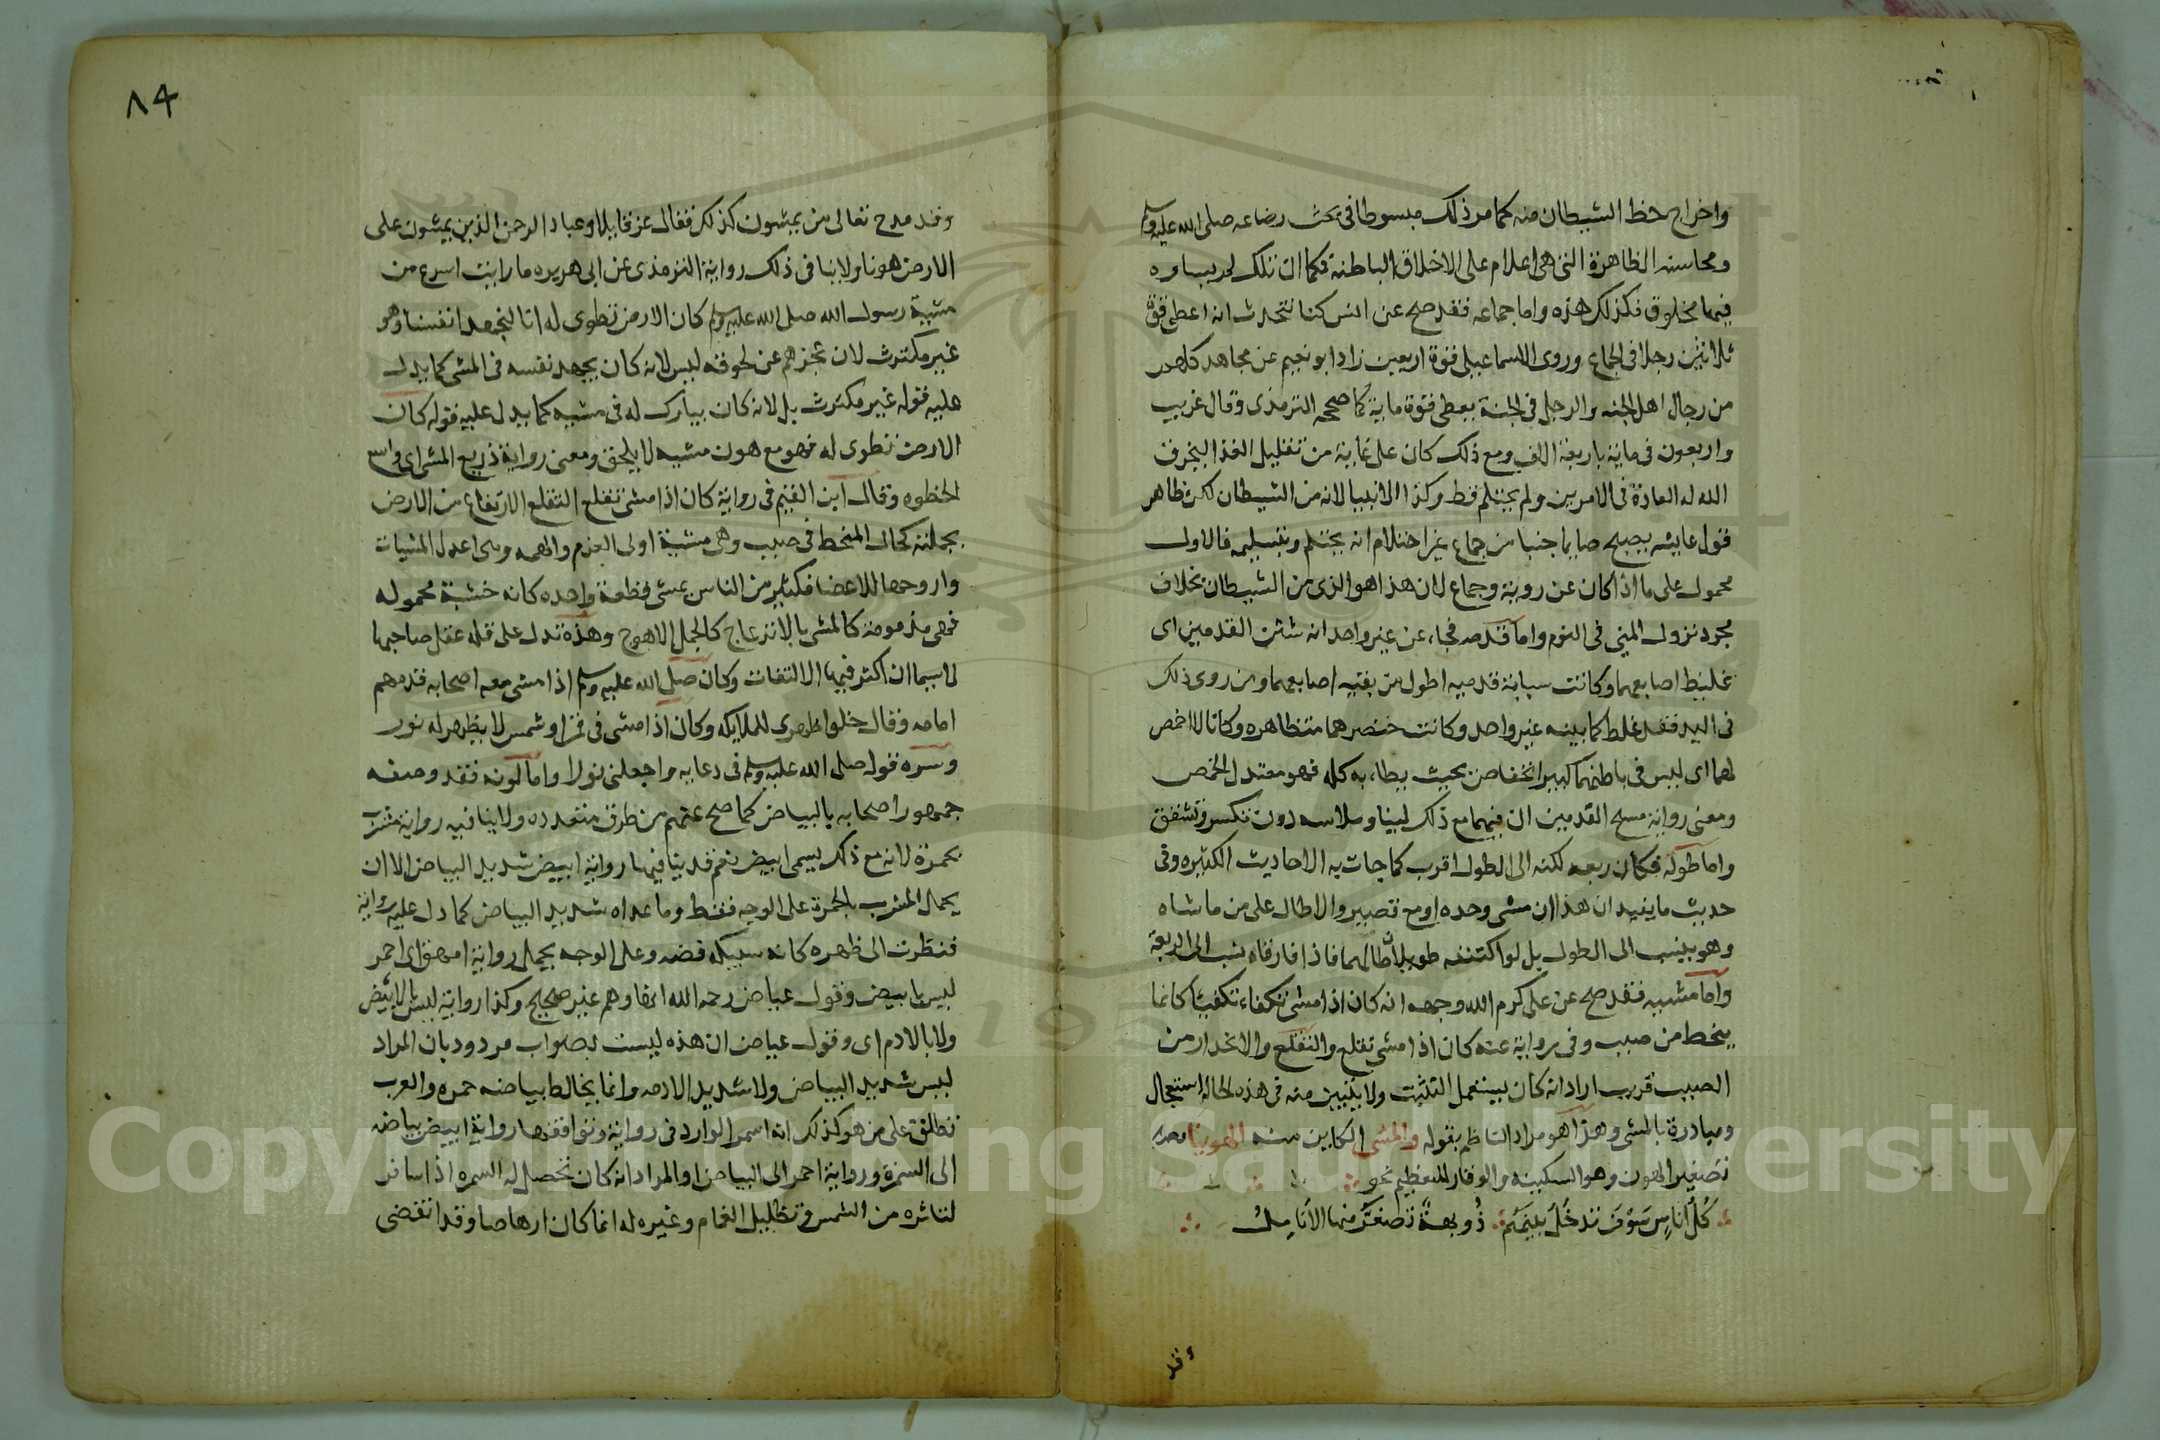 واخراج حظ الشيطان منه كما مر ذلك مبسوطا في بحث رضاعه صلى الله عليه وسلم
ومحاسنه الظاهرة التي هي اعلام على الاخلاق الباطنة فكما ان تلك لم يساوه
فيها مخلوق فكذلك هذه واما جماعه فقد صح عن انس كنا نتحدث انه اعطي قوة
ثلاثين رجلا في الجماع وروى الاسماعيلي قوة اربعين زاد ابو نعيم عن مجاهد كل
من رجال اهل الجنه والرجل في الجنة يعطى قوة ماية كما صححه الترمذي وقال غريب
واربعون في ماية باربعة الاف ومع ذلك كان على غاية من تقليل الغذا
الله له العادة في الامرين ولم يحتلم قط وكذا الانبيا لانه من الشيطان لكن ظاهر
قول عايشه يصبح صايما جنبا من جماع غير احتلام انه يحتلم وبتسليمه فالاول
محمول على ما اذا كان عن روية وجماع لان هذا هو الذي من الشيطان بخلاف
مجرد نزول المني في النوم واما قدمه فجاء عن غير واحد انه شثن القدمين اى
غليظ اصابعهما وكانت سبابة قدميه اطول من بقية اصابعهما ومن روى ذلك
في اليد فقد غلط كما بينه غير واحد وكانت خنصرهما متظاهره وكانا لا اخمص
لهما اى ليس في باطنهما كبير انخفاض بحيث يطاء به كله فهو معتدل الخمص
ومعنى رواية مسيح القدمين ان فيهما مع ذلك لينا وملاسه دون تكسر وتشقق
واما طوله فكان ربعه لكنه الى الطول اقرب كما جات به الاحاديث الكثيره وفي
حديث ما يفيد ان هذا ان مشى وحده او مع قصير والا طال على من ماشاه
وهو ينسب الى الطول بل لو اكتنفه طويلان طالهما فاذا فارقاه نسب الى الربعة
واما مشيه فقد صح عن علي كرم الله وجهه انه كان اذا مشى تكفاء تكفيا كانما
ينحط من صبب وفي رواية عنه كان اذا مشى تقلع والتقلع والانحدار من
الصبب قريب اراد انه كان يستعمل التثبت ولا يتبين منه في هذه الحالة استعجال
ومبادرة بالمشي وهذا هو مراد الناظم بقوله والمشي الكاين منه الهوينا
تصغير الهون وهو السكينه والوقار للتعظيم نحو
كُلُّ أُنَاسٍ سَوْفَ تَدْخُلُ بَيْنَهُمْ دُوَيهِيَةٌ تَصْفَرُّ منها الأَنَامِلُ
وقد
٨٤
وقد مدح تعالى من يمشون كذلك فقال عز قايلا وعباد الرحمن الذين يمشون على
الارض هونا ولا ينافي ذلك رواية الترمذي عن ابى هريره ما رايت اسرع من
مشية رسول الله صلى الله عليه وسلم كان الارض تطوى له انا لنجهد انفسنا وهو
غير مكترث لان عجزهم عن لحوقه ليس لانه كان يجهد نفسه في المشي كما يدل
عليه قوله غير مكترث بل لانه كان يبارك له في مشيه كما يدل عليه قوله كان
الارض تطوى له فهو مع هون مشيه لا يلحق ومعنى رواية ذريع المشي اى واسع
الخطوه وقال ابن القيم في رواية كان اذا مشى تقلع التقلع الارتفاع من الارض
بجملته كحال المنحط في صبب وهي مشية اولى العزم والهمه وهى اعدل المشيات
واروحها للاعضا فكثير من الناس يمشى قطعة واحده كانه خشبة محموله
فهى مذمومة كالمشي بالانزعاج كالجمل الاهوج وهذه تدل على قله عقل صاحبها
لا سيما ان اكثر فيها الالتفات وكان صلى الله عليه وسلم اذا مشى معه اصحابه قدمهم
امامه وقال خلوا ظهرى للملايكه وكان اذا مشى في قمر او شمس لا يظهر له نور
وسره قوله صلى الله عليه وسلم في دعايه واجعلني نورا واما لونه فقد وصفه
جمهور اصحابه بالبياض كما صح عنهم من طرق متعدده ولا ينافيه رواية مشرب
بحمرة لانه مع ذلك يسمى ابيض نعم قد ينافيها رواية ابيض شديد البياض الا ان
يحمل المشرب بالحمرة على الوجه فقط وما عداه شديد البياض كما دل عليه رواية
فنظرت الى ظهره كانه سبيكه فضه وعلى الوجه يحمل رواية امهق اى احمر
ليس بابيض وقول عياض رحمه الله انها وهم غير صحيح وكذا رواية ليس بالابيض
ولا بالادم اى وقول عياض ان هذه ليست بصواب مردود بان المراد
ليس شديد البياض ولا شديد الادمه وانما يخالط بياضه حمره والعرب
تطلق على من هو كذلك انه اسمر الوارد في رواية وتوافقها رواية ابيض بياضه
الى السمرة ورواية احمر الى البياض او المراد انه كان تحصل له السمره اذا سافر
لتاثره من الشمس وتظليل الغمام وغيره له انما كان ارهاصا وقد انقضى
Copyright © King Saud University